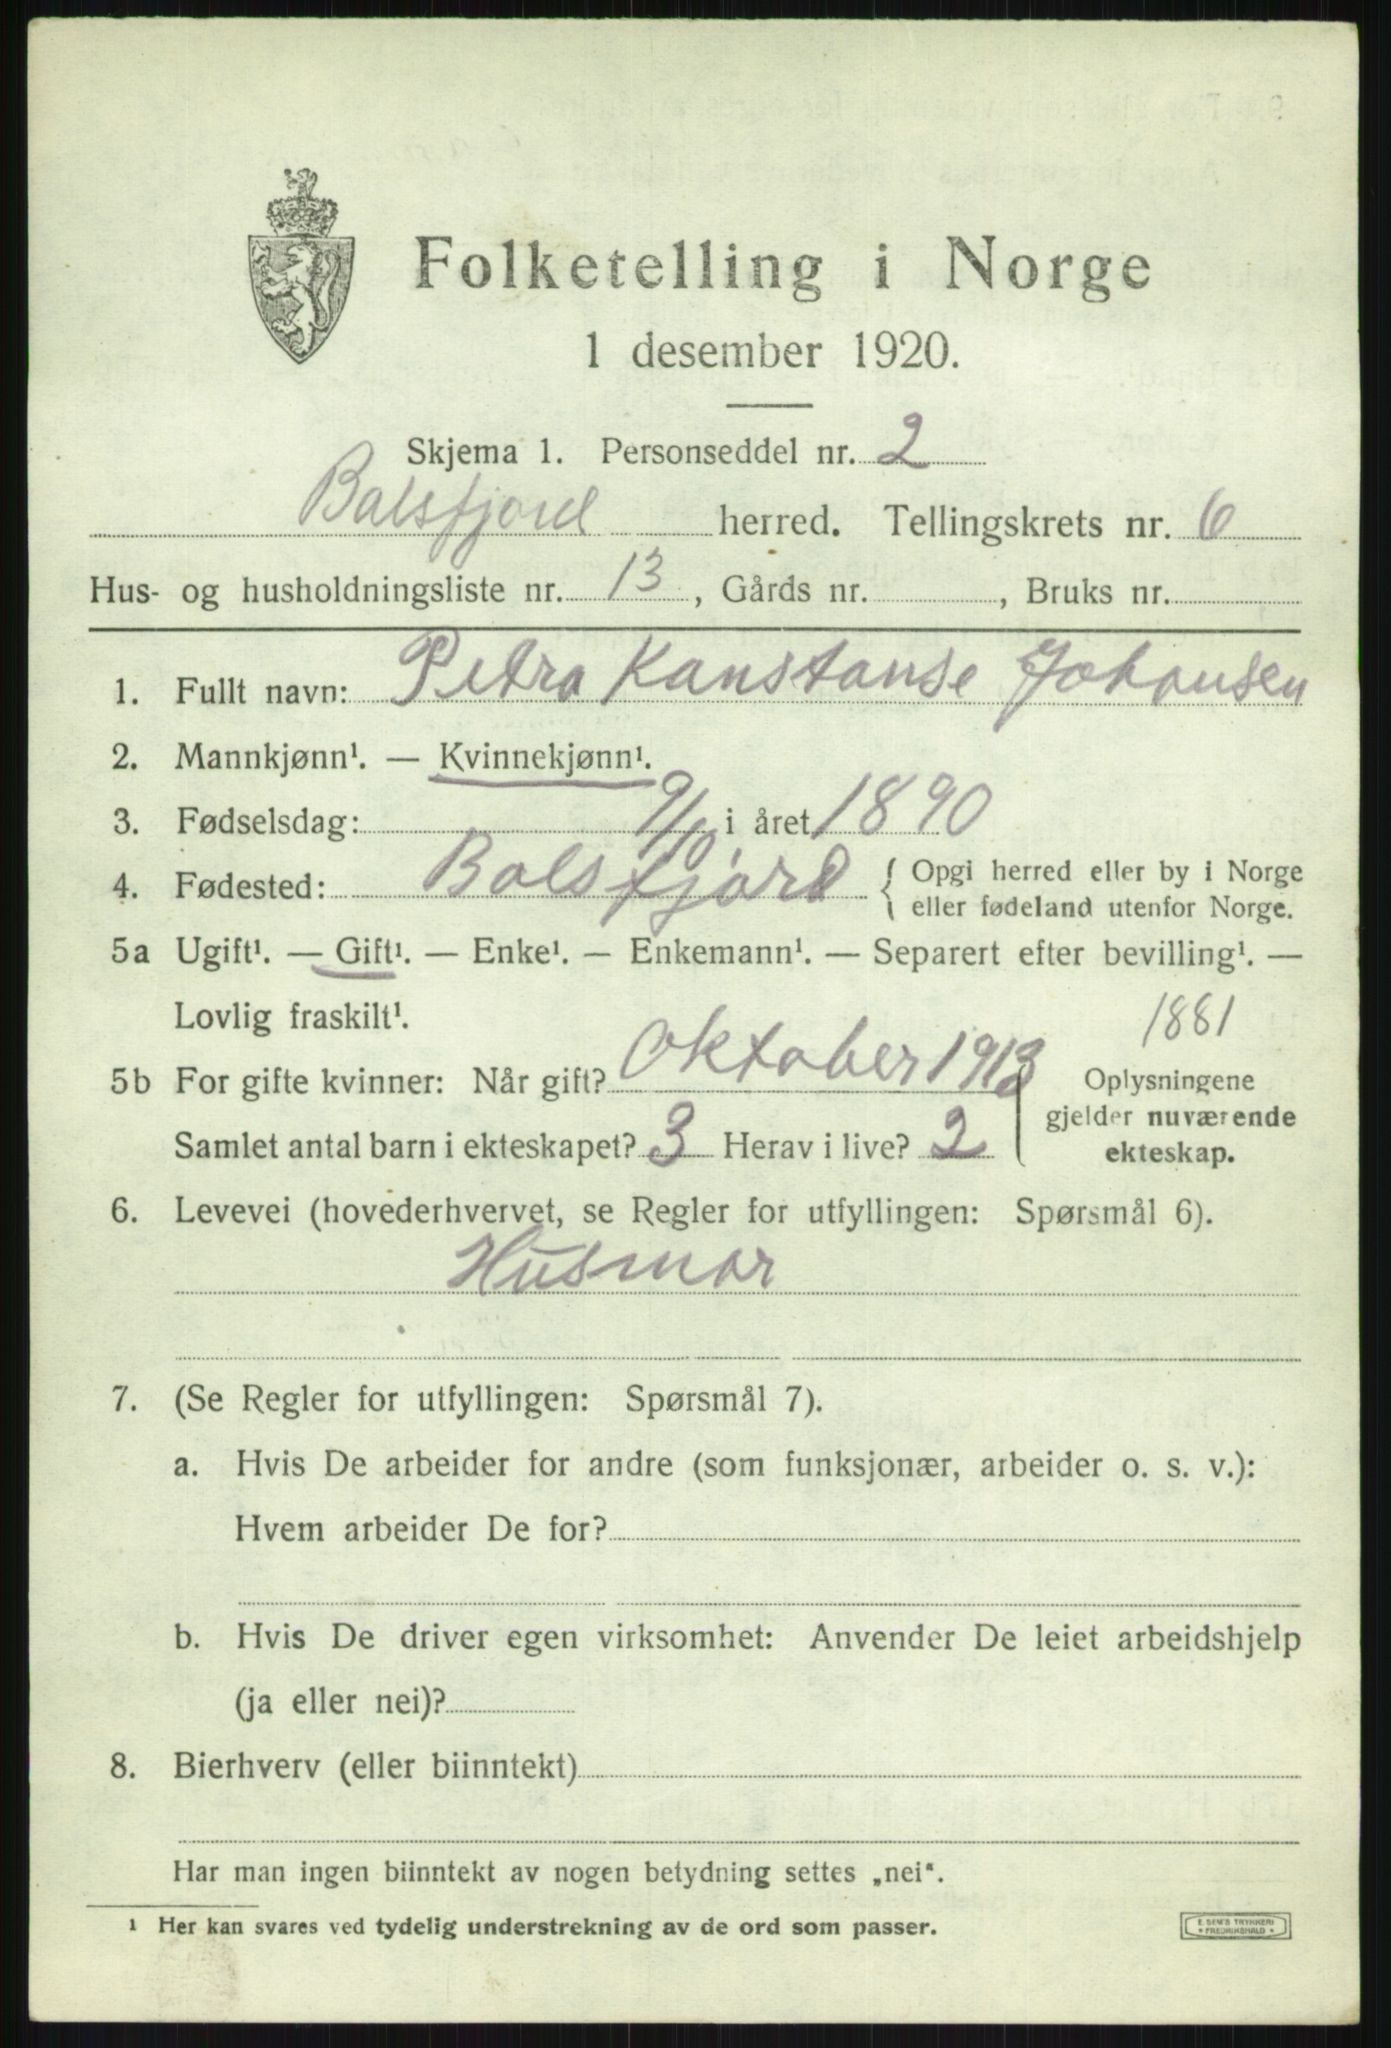 Folketelling i Norge
1 desember 1920.
Skjema 1. Personseddel nr. 2
Balsfjord herred. Tellingskrets nr. 6
Hus- og husholdningsliste nr. 13, Gårds nr. , Bruks nr.
1. Fullt navn: Petra Kanstanse Johansen
2. Mannkjønn¹. — Kvinnekjønn¹.
3. Fødselsdag: 9/10 i året 1890
4. Fødested: Balsfjord { Opgi herred eller by i Norge
eller fødeland utenfor Norge.
5a Ugift¹. — Gift¹. — Enke¹. — Enkemann¹. — Separert efter bevilling¹. —
Lovlig fraskilt¹.
1881
5b For gifte kvinner: Når gift? Oktober 1913
Samlet antal barn i ekteskapet? 3 Herav i live? 2
Oplysningene
gjelder nuværende
ekteskap.
6. Levevei (hovederhvervet, se Regler for utfyllingen: Spørsmål 6).
Husmor
7. (Se Regler for utfyllingen: Spørsmål 7).
a. Hvis De arbeider for andre (som funksjonær, arbeider o. s. v.):
Hvem arbeider De for?
b. Hvis De driver egen virksomhet: Anvender De leiet arbeidshjelp
(ja eller nei)?
8. Bierhverv (eller biinntekt)
Har man ingen biinntekt av nogen betydning settes „nei“.
¹ Her kan svares ved tydelig understrekning av de ord som passer.
E. SEM'S TRYKKERI
* FREDRIKSHALD *